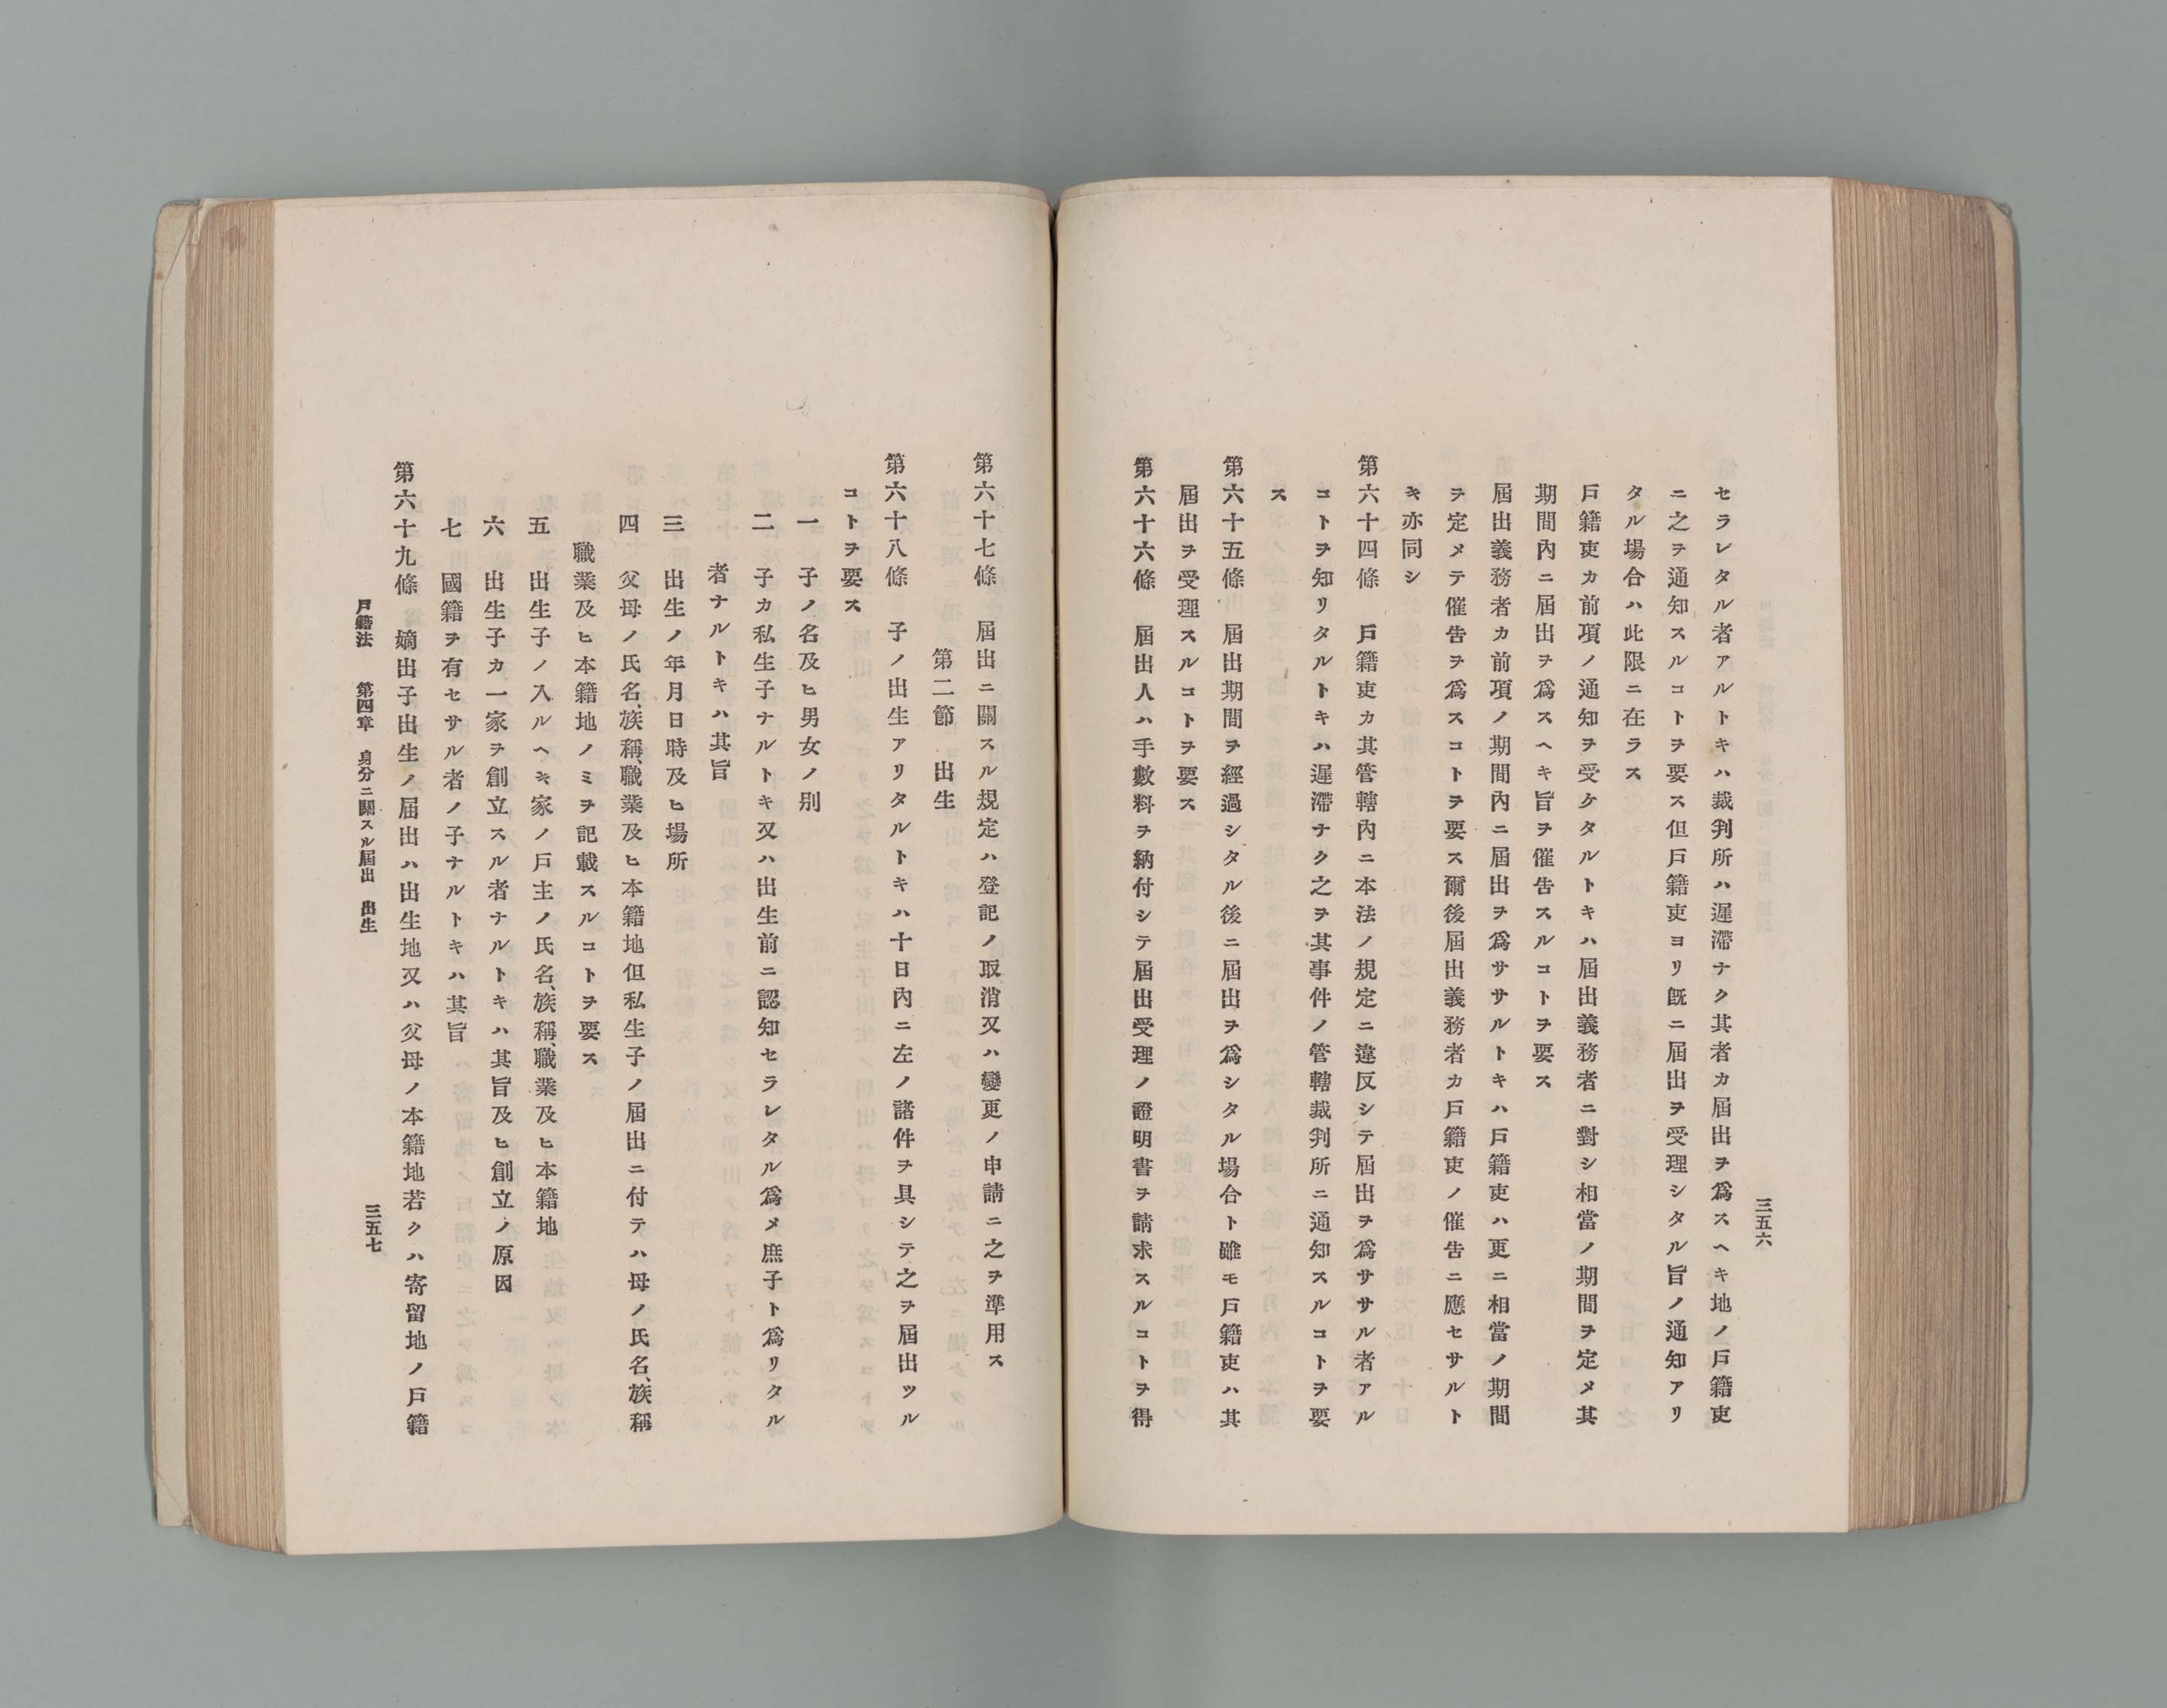 三五六
セラレタル者アルトキハ裁判所ハ遲滯ナク其者カ屆出ヲ爲スヘキ地ノ戸籍吏
ニ之ヲ通知スルコトヲ要ス但戸籍吏ヨリ既ニ屆出ヲ受理シタル旨ノ通知アリ
タル場合ハ此限ニ在ラス
戸籍吏カ前項ノ通知ヲ受ケタルトキハ屆出義務者ニ對シ相當ノ期間ヲ定メ其
期間內ニ屆出ヲ爲スヘキ旨ヲ催告スルコトヲ要ス
屆出義務者カ前項ノ期間內ニ屆出ヲ爲ササルトキハ戸籍吏ハ更ニ相當ノ期間
ヲ定メテ催告ヲ爲スコトヲ要ス爾後屆出義務者カ戸籍吏ノ催告ニ應セサルト
キ亦同シ
第六十四條　戸籍吏カ其管轄內ニ本法ノ規定ニ違反シテ屆出ヲ爲ササル者アル
コトヲ知リタルトキハ遲滯ナク之ヲ其事件ノ管轄裁判所ニ通知スルコトヲ要
ス
第六十五條　屆出期間ヲ經過シタル後ニ屆出ヲ爲シタル場合ト雖モ戸籍吏ハ其
屆出ヲ受理スルコトヲ要ス
第六十六條　屆出人ハ手數料ヲ納付シテ屆出受理ノ證明書ヲ請求スルコトヲ得
第六十七條　屆出ニ關スル規定ハ登記ノ取消又ハ變更ノ申請ニ之ヲ準用ス
第二節　出生
第六十八條　子ノ出生アリタルトキハ十日內ニ左ノ諸件ヲ具シテ之ヲ屆出ツル
コトヲ要ス
一　子ノ名及ヒ男女ノ別
二　子カ私生子ナルトキ又ハ出生前ニ認知セラレタル爲メ庶子ト爲リタル
者ナルトキハ其旨
三　出生ノ年月日時及ヒ場所
四　父母ノ氏名、族稱、職業及ヒ本籍地但私生子ノ屆出ニ付テハ母ノ氏名、族稱
職業及ヒ本籍地ノミヲ記載スルコトヲ要ス
五　出生子ノ入ルヘキ家ノ戸主ノ氏名、族稱、職業及ヒ本籍地
六　出生子カ一家ヲ創立スル者ナルトキハ其旨及ヒ創立ノ原因
七　國籍ヲ有セサル者ノ子ナルトキハ其旨
第六十九條　嫡出子出生ノ屆出ハ出生地又ハ父母ノ本籍地若クハ寄留地ノ戸籍
戸籍法　第四章　身分ニ關スル屆出　出生
三五七